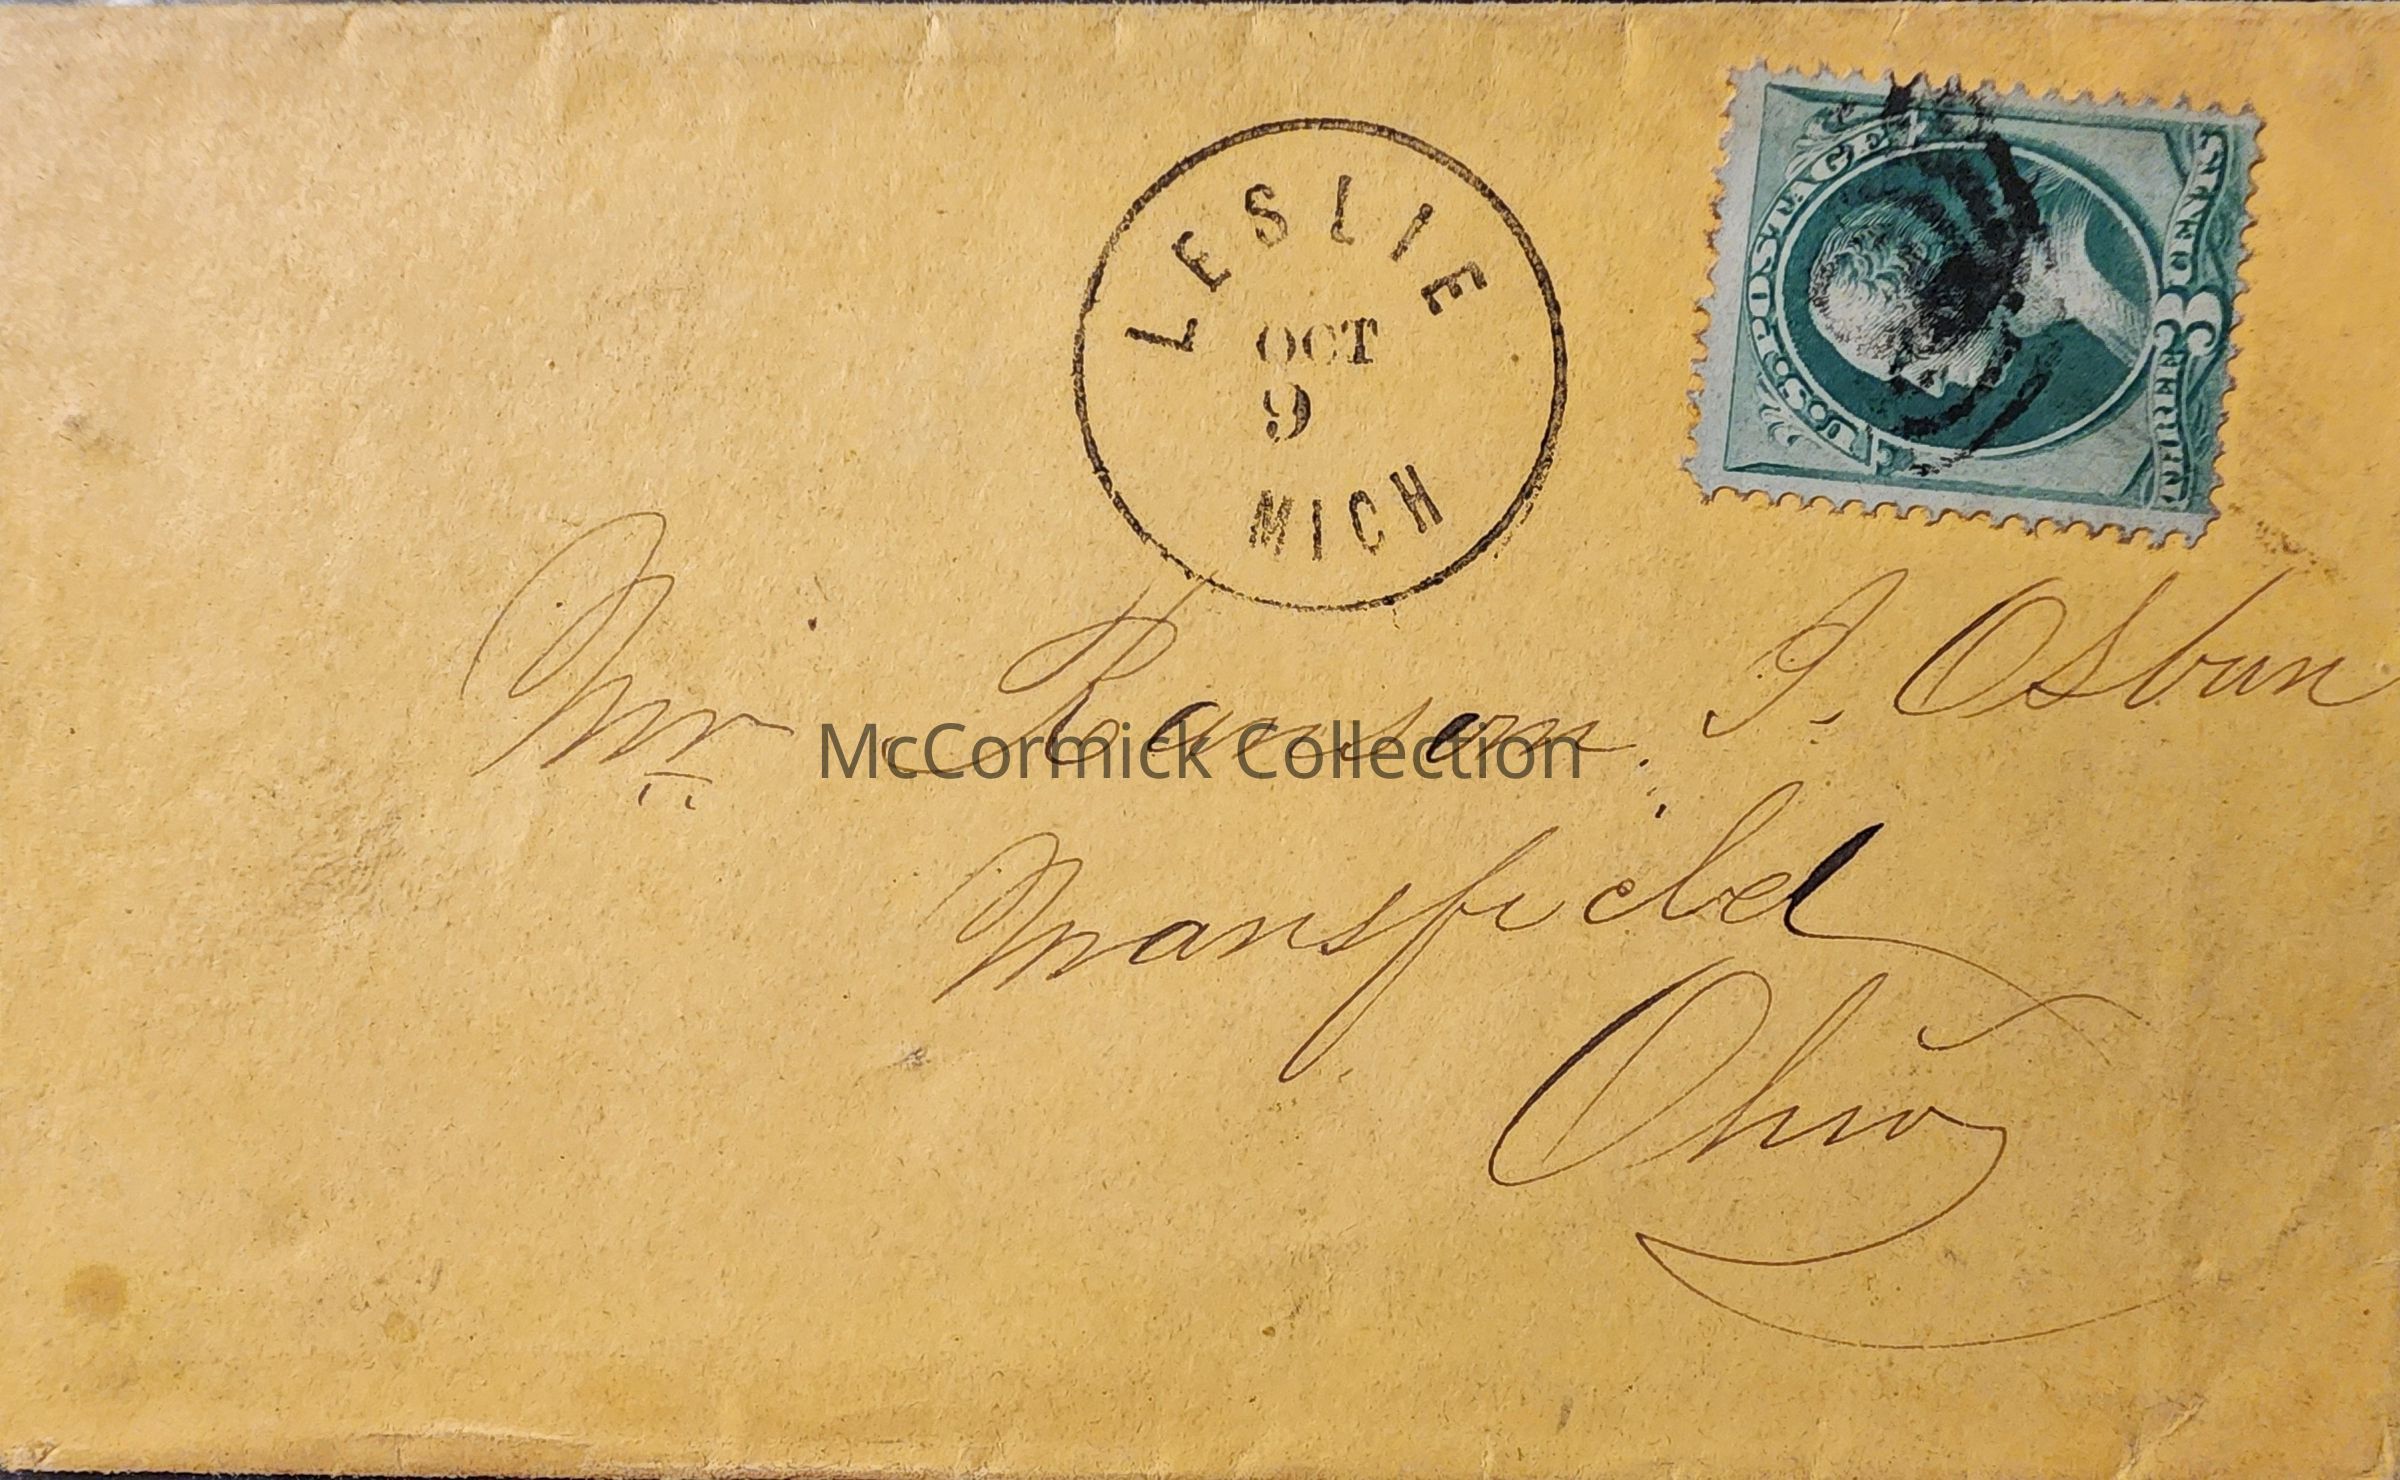 LESLIE
OCT
9
MICH
U.S. POSTAGE
THREE 3 CENTS
Mr Ranson. I. Osbun
McCormick Collection
Mansfield
Ohio